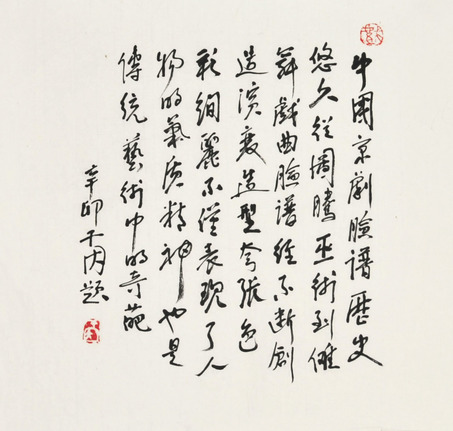 中國京劇臉譜歷史
悠久從圖騰巫術到儺
舞戲曲臉譜經不斷創
造演變造型夸張色
彩絢麗不僅表現了人
物的氣質精神也是
傳統藝術中的奇葩
辛卯題